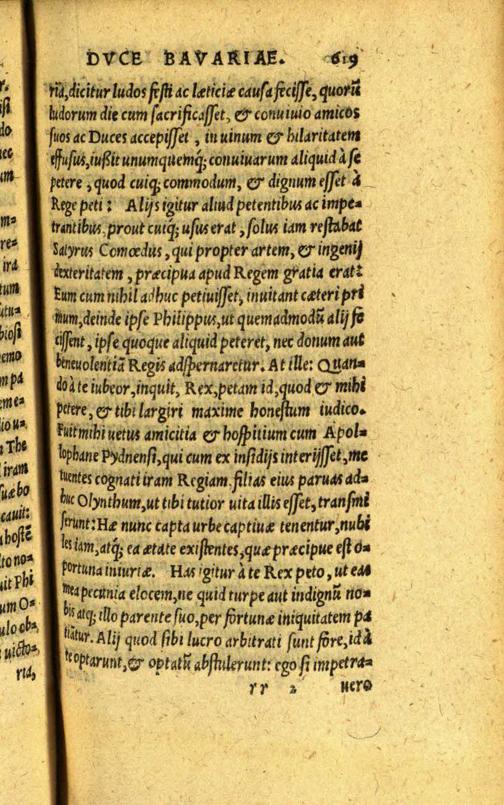 DVCE BAVARIAE. 619
ria, dicitur ludos festi ac læticiæ causa fecisse, quorũ
ludorum die cum sacrificasset, & conuiuio amicos
suos ac Duces accepisset, in uinum & hilaritatem
effusus, iußit unumquemq́; conuiuarum aliquid à se
petere, quod cuiq; commodum, & dignum esset à
Rege peti: Alijs igitur aliud petentibus ac impe-
trantibus, prout cuiq; usus erat, solus iam restabat
Satyrus Comœdus, qui propter artem, & ingenij
dexteritatem, præcipua apud Regem gratia erat:
Eum cum nihil adhuc petiuisset, inuitant cæteri pri
mum, deinde ipse Philippus, ut quemadmodũ alij fe
cissent, ipse quoque aliquid peteret, nec donum aut
beneuolentiã Regis adspernaretur. At ille: Quan-
do à te iubeor, inquit, Rex, petam id, quod & mihi
petere, & tibi largiri maxime honestum iudico.
Fuit mihi uetus amicitia & hospitium cum Apol-
lophane Pydnensi, qui cum ex insidijs interijsset, me
tuentes cognati iram Regiam. filias eius paruas ad-
huc Olynthum, ut tibi tutior uita illis esset, transmi
serunt: Hæ nunc capta urbe captiuæ tenentur, nubi
les iam, atq; ea ætate existentes, quæ præcipue est o-
portuna iniuriæ. Has igitur à te Rex peto, ut eas
mea pecunia elocem, ne quid turpe aut indignũ no-
bis atq; illo parente suo, per fortunæ iniquitatem pa
tiãtur. Alij quod sibi lucro arbitrati sunt fore, id à
te optarunt, & optatũ abstulerunt: ego si impetra-
rr 2 uero